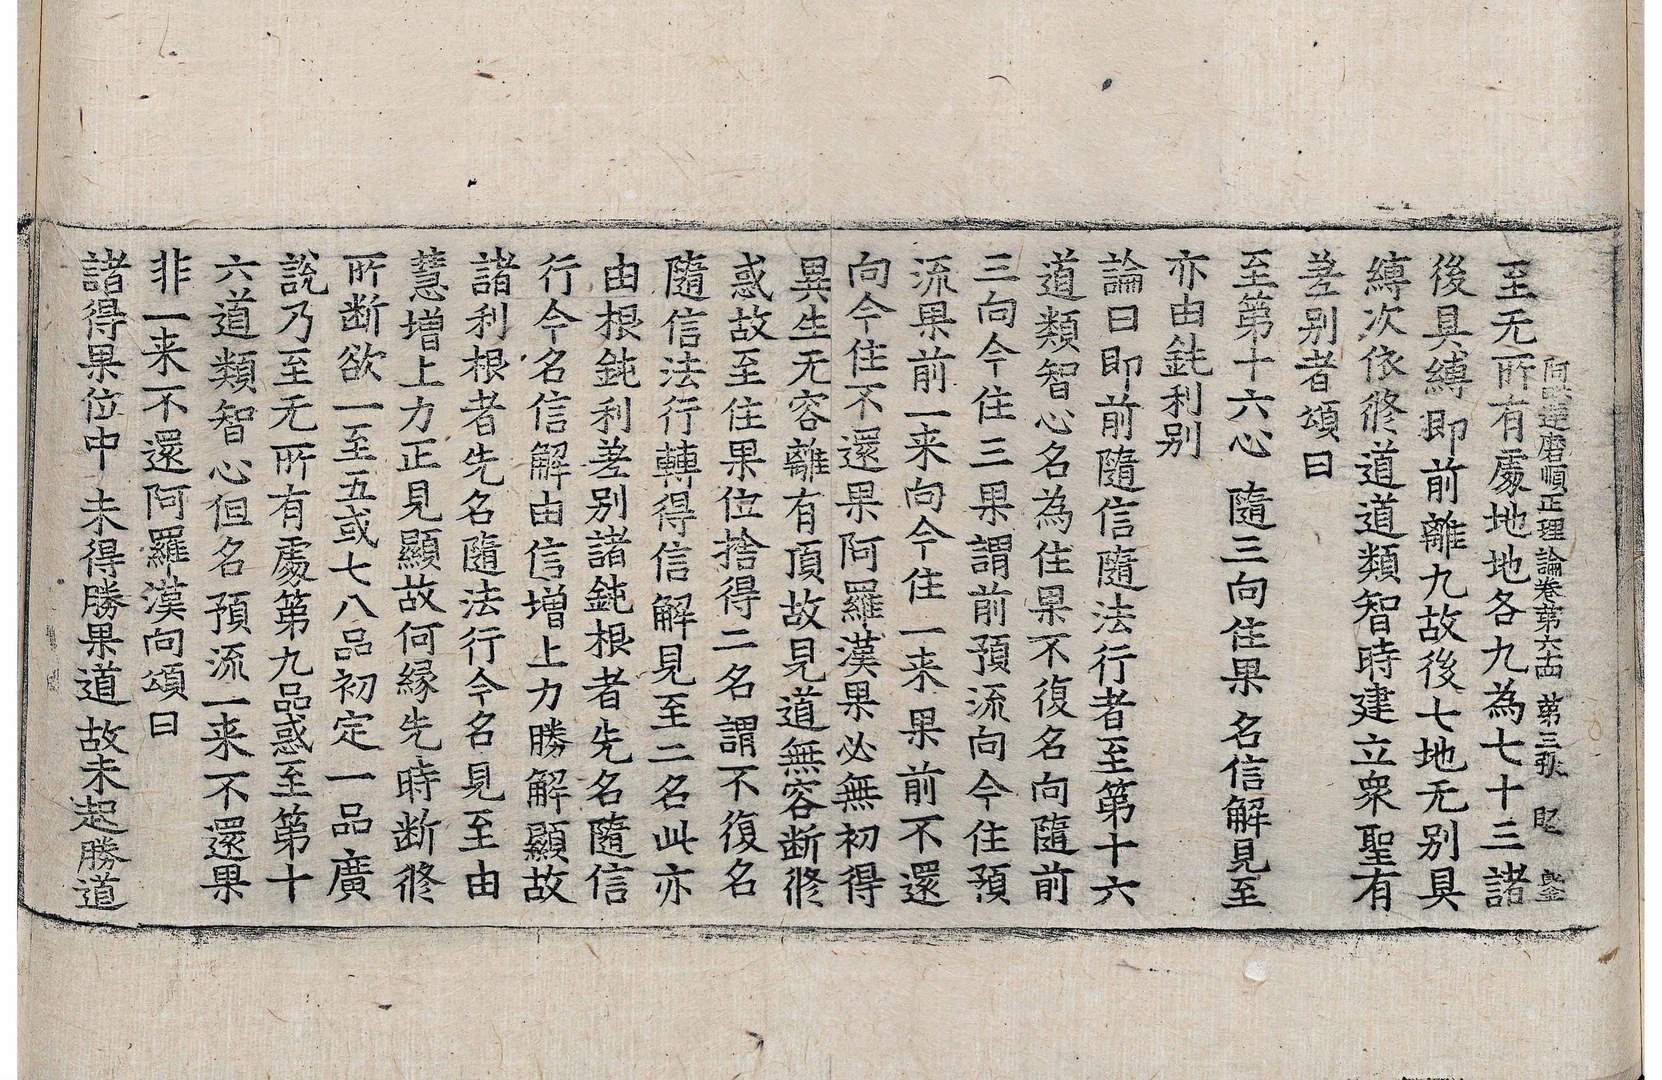 阿毗達磨順正理論卷第六十四 第三張 昆
至无所有處地地各九為七十三諸
後具縛即前離九故後七地无別具
縛次依修道道類智時建立眾聖有
差別者頌曰
至第十六心 隨三向住果 名信解見至
亦由鈍利別
論曰即前隨信隨法行者至第十六
道類智心名為住果不復名向隨前
三向今住三果謂前預流向今住預
流果前一来向今住一来果前不還
向今住不還果阿羅漢果必無初得
異生无容離有頂故見道無容断修
惑故至住果位捨得二名謂不復名
隨信法行轉得信解見至二名此亦
由根鈍利差別諸鈍根者先名隨信
行今名信解由信增上力勝解顯故
諸利根者先名隨法行今名見至由
慧增上力正見顯故何緣先時断修
所断欲一至五或七八品初定一品廣
說乃至无所有處第九品惑至第十
六道類智心但名預流一来不還果
非一来不還阿羅漢向頌曰
諸得果位中 未得勝果道 故未起勝道